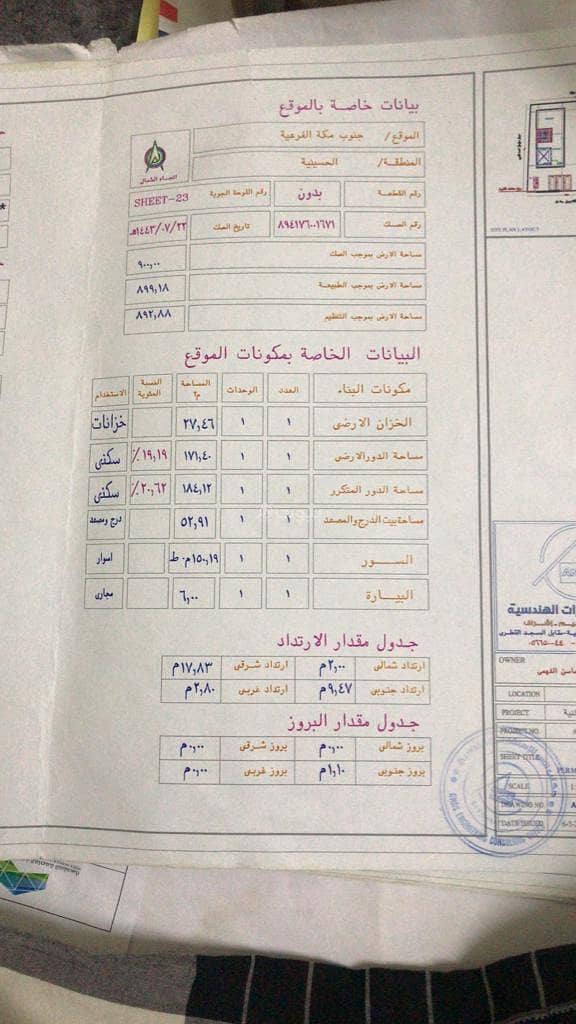 بيانات خاصة بالموقع
الموقع/ جنوب مكة الفرعية
المنطقة/ الحسينية
اتجاه الشمال
رقم القطعة بدون رقم اللوحة الجوية SHEET-23
رقم الصك ٨٩٤١٧٦٠٠١٦٧١ تاريخ الصك ١٤٤٣/٠٧/٢٢هـ
مساحة الارض بموجب الصك ٩٠٠,٠٠
مساحة الارض بموجب الطبيعة ٨٩٩,١٨
مساحة الارض بموجب التنظيم ٨٩٢,٨٨
البيانات الخاصة بمكونات الموقع
مكونات البناء العدد الوحدات المساحة م٢ النسبة المئوية الاستخدام
الخزان الارضى ١ ١ ٢٧,٤٦ خزانات
مساحة الدور الارضى ١ ١ ١٧١,٤٠ ١٩,١٩٪ سكنى
مساحة الدور المتكرر ١ ١ ١٨٤,١٢ ٢٠,٦٢٪ سكنى
مساحة بيت الدرج والمصعد ١ ١ ٥٢,٩١ درج ومصعد
الســور ١ ١ ١٥٠,١٩م٠ط اسوار
البيارة ١ ١ ٦,٠٠ مجارى
جدول مقدار الارتداد
ارتداد شمالى ٢,٠٠م ارتداد شرقى ١٧,٨٣م
ارتداد جنوبى ٩,٤٧م ارتداد غربى ٢,٨٠م
جدول مقدار البروز
بروز شمالى ٠,٠٠م بروز شرقى ٠,٠٠م
بروز جنوبى ١,١٠م بروز غربى ٠,٠٠م
SITE PLAN LAYOUT
ات الهندسية
OWNER
LOCATION
PROJECT
PROJECT NO.
SHEET TITLE
SCALE
DRAWING NO.
DATE ISSUED